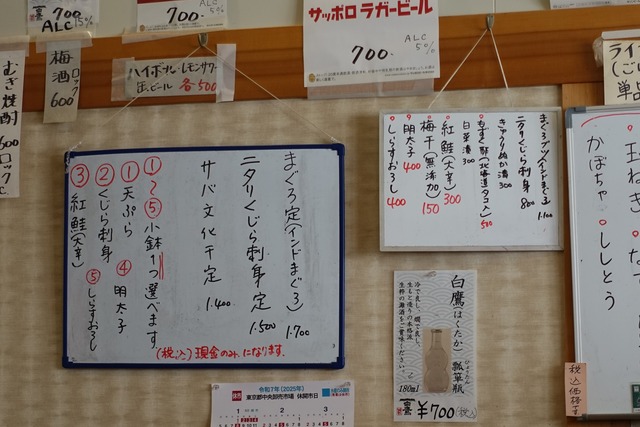 700.-
ALC 5%
サッポロ ラガービール
700.-
ALC 5%
ハイボール・レモンサワー
缶ビール 各500
梅酒 ロック 600
むぎ焼酎 600 ロック
まぐろ定(インドまぐろ) 1.700
ニタリくじら刺身定 1.500
サバ文化干定 1.400
①〜⑤小鉢1つ選べます
①天ぷら ④明太子
②くじら刺身 ⑤しらすおろし
③紅鮭(大辛)
(税込)現金のみになります。
まぐろブツ(インドまぐろ) 1.100
ニタリくじら刺身 800
きゅうりぬか漬 300
もずく酢(北海道タコ入) 500
白菜漬 300
紅鮭(大辛) 300
梅干(無添加) 150
明太子 400
しらすおろし 400
白鷹(はくたか)瓢箪瓶
ひょうたん
冷で良し、燗で良し、
生もと造りの本格派
生粋の灘酒をご賞味ください。
180ml
¥700(税込)
令和7年(2025年)
東京都中央卸売市場 休開市日
1 2 3
玉ねぎ
かぼちゃ ししとう
税込価格です
単品